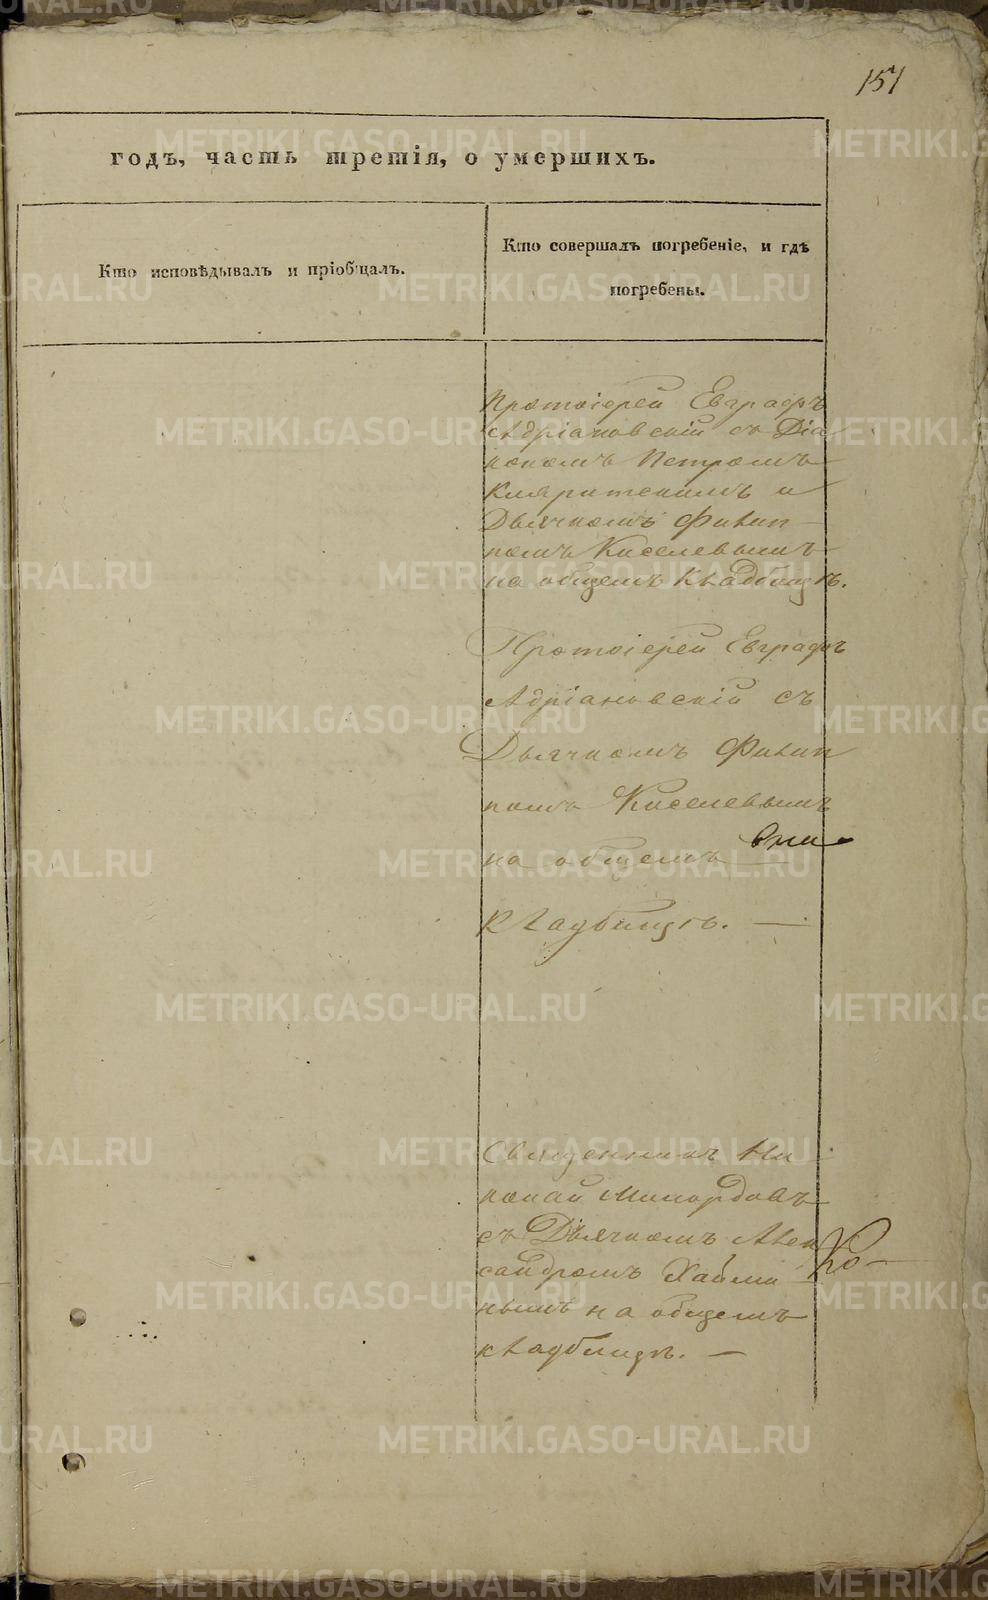 151
годъ, часть третія, о умершихъ.
Кто исповѣдывалъ и пріобщалъ.
Кто совершалъ погребеніе, и гдѣ
погребены.
Протоіерей Евграфъ
Адріановскій съ Діа
кономъ Петромъ
и
Дьячкомъ Филип
помъ Киселевымъ
на общемъ кладбищѣ.
Протоіерей Евграфъ
Адріановскій съ
Дьячкомъ Филип
помъ Киселевымъ
на общемъ
кладбищѣ.
Священникъ Ни
колай
съ Дьячкомъ Алек
сандромъ
нымъ на общемъ
кладбищѣ.
METRIKI.GASO-URAL.RU